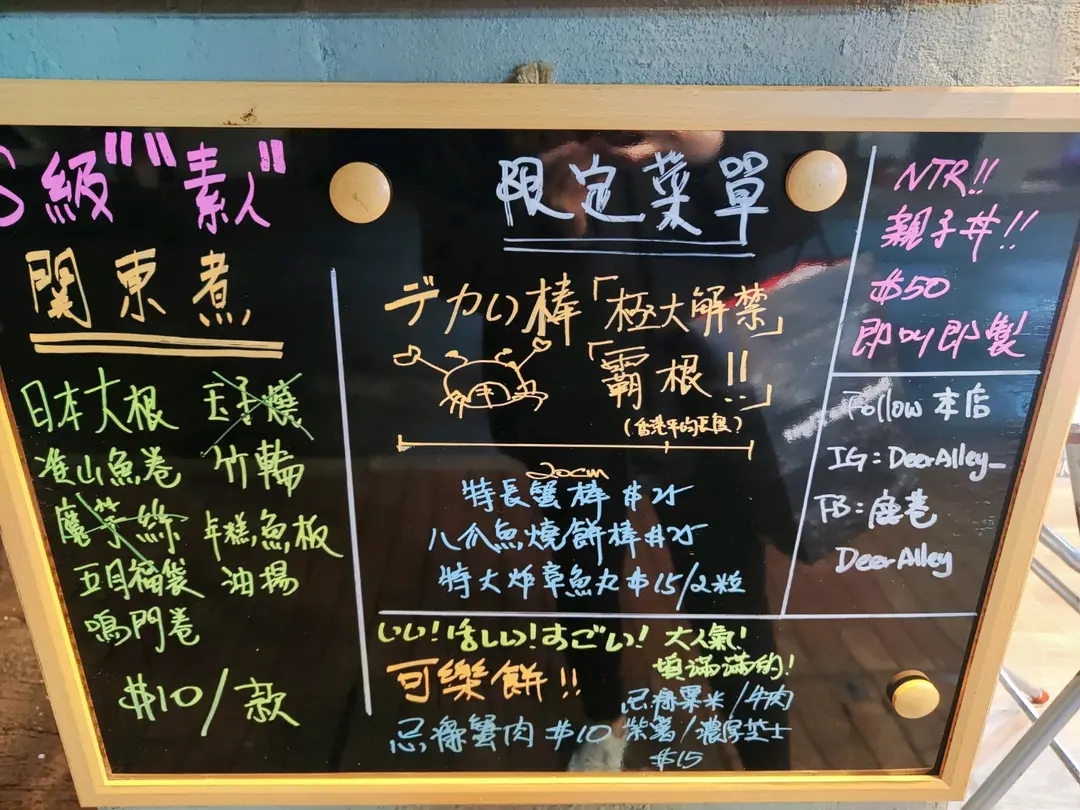 S級""素人"
関東煮
日本大根 玉子燒
進山魚卷 竹輪
魔芋絲 年糕魚板
五目福袋 油揚
鳴門卷
$10/款
限定菜單
デカい棒「極大解禁」
「霸根!!」
(香港平均長度)
20cm
特長蟹棒 $25
八爪魚燒餅棒 $25
特大炸章魚丸 $15/2粒
いい!ほしい!すごい! 大人氣!
可樂餅!! 填滿滿的!
忌廉蟹肉 $10
忌廉粟米/牛肉
紫薯/濃厚芝士
$15
NTR!!
親子丼!!
$50
即叫即製!
Follow 本店
IG: DeerAlley_
FB: 鹿巷
DeerAlley